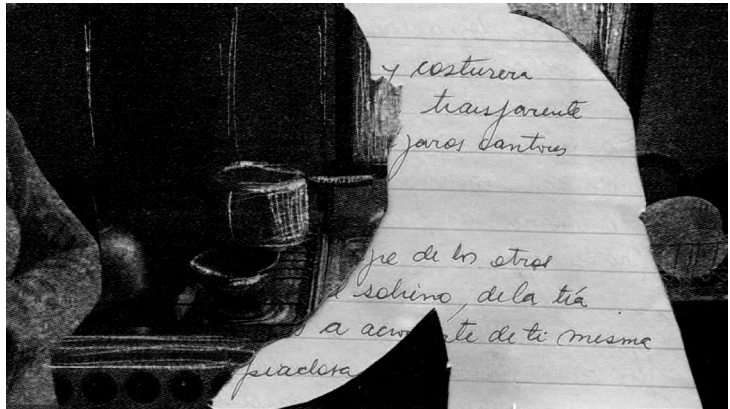 y costurera
transparente
jaros cantores
pre de los otros
l sobrino, de la tía
s a de ti misma
piadosa